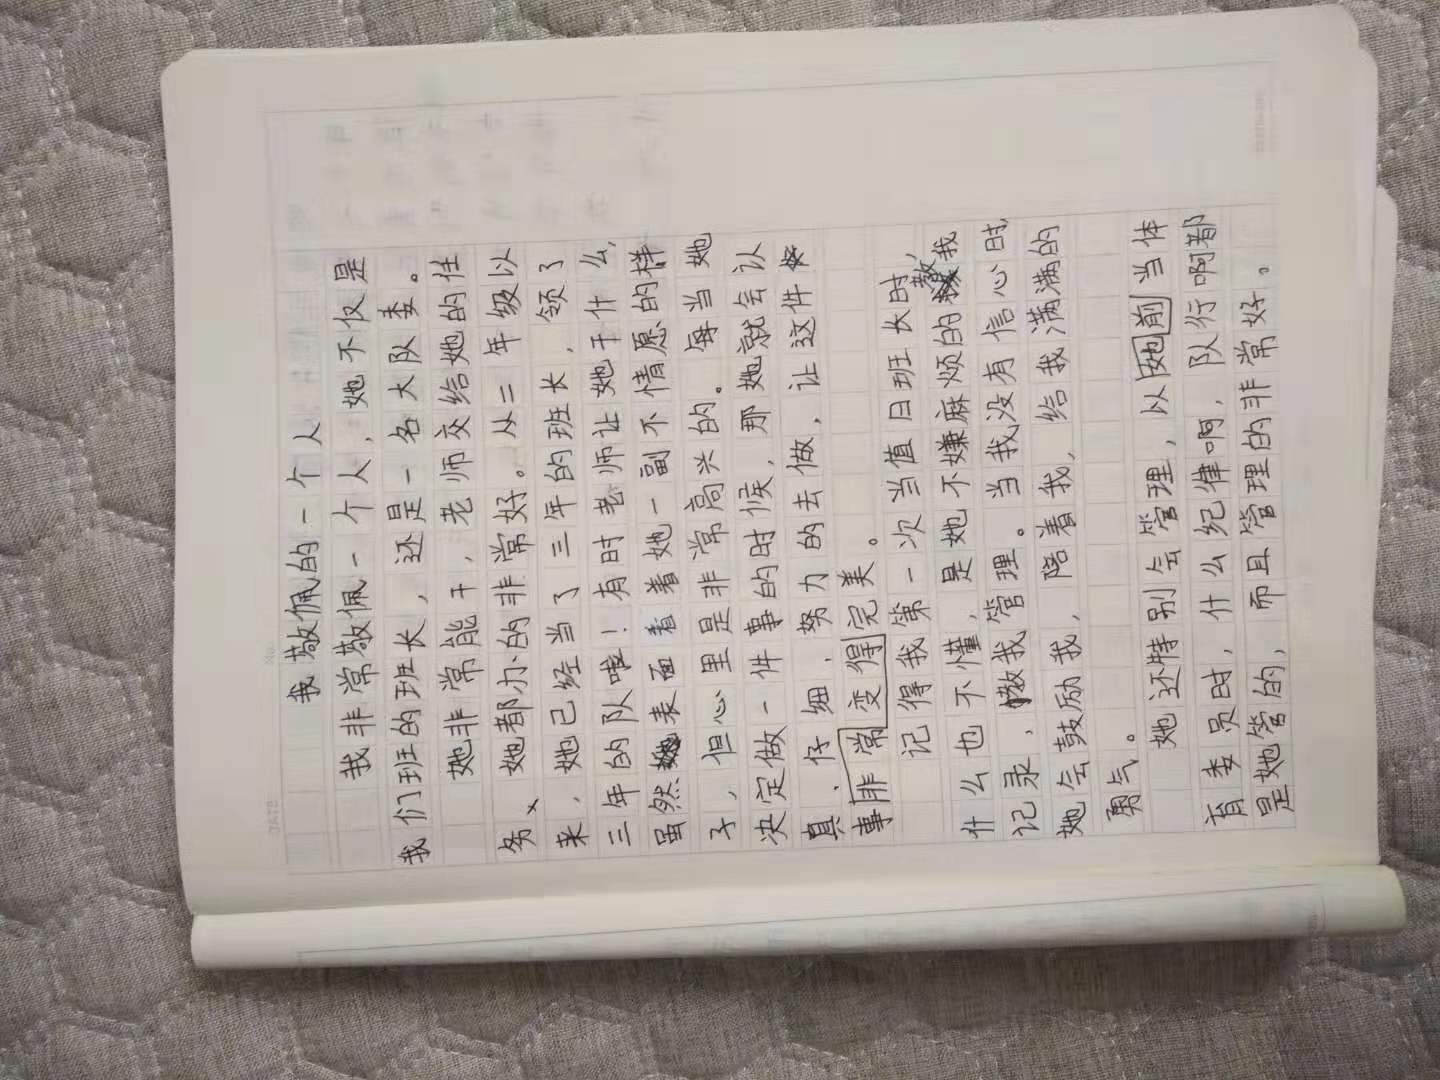 我敬佩的一个人
我非常敬佩一个人，她不仅是
我们班的班长，还是一名大队委。
她非常能干，老师交给她的任
务，她都办的非常好。从二年级以
来，她已经当了三年的班长，领了
三年的队啦！有时老师让她干什么，
虽然表面看着她一副不情愿的样
子，但心里是非常高兴的。每当她
决定做一件事的时候，那她就会认
真、仔细、努力的去做，让这件
事非常变得完美。
记得我第一次当值日班长时，
什么也不懂，是她不嫌麻烦的教我
记录、教我管理。当我没有信心时
她会鼓励我，陪着我，给我满满的
勇气。
她还特别会管理，以她前当体
育委员时，什么纪律啊，队行啊都
是她管的，而且管理的非常好。